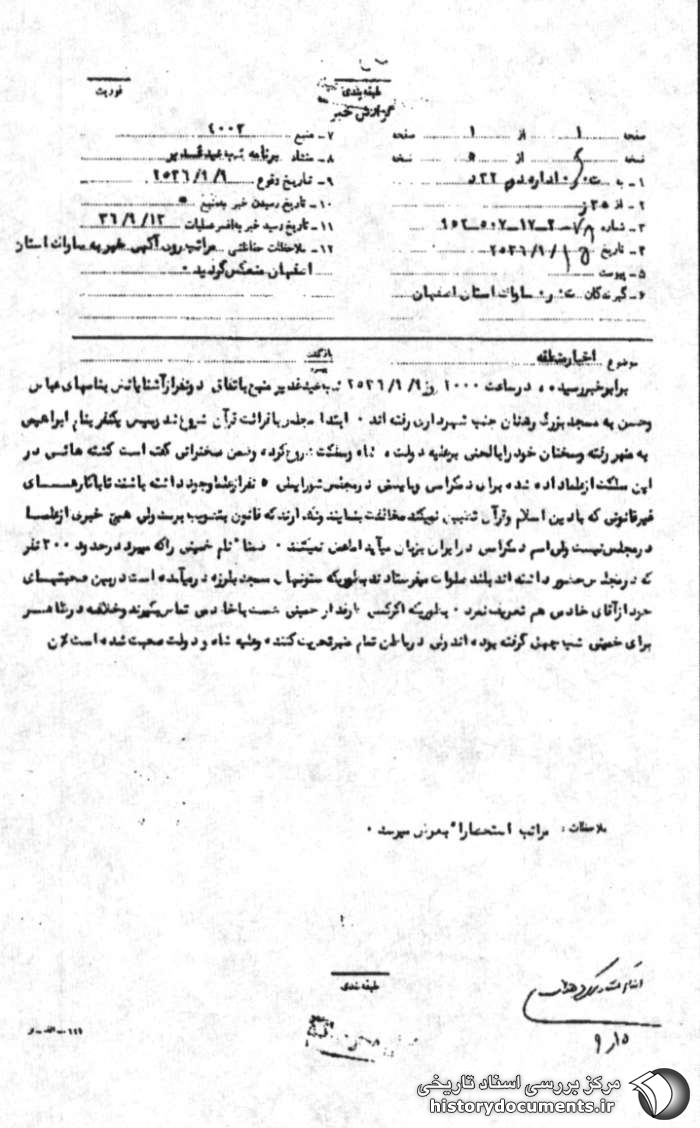 طبقه‌بندی
فوریت
گزارش خبر
صفحه ۱ از ۱ صفحه
نسخه از ۵ نسخه
۱ـ به
۲ـ از ۲۵ ز
۳ـ شماره
۴ـ تاریخ
۵ـ پیوست
۶ـ گیرندگان ساواک استان اصفهان
۷ـ منبع ۱۰۰۲
۸ـ منشاء برنامه شب عید غدیر
۹ـ تاریخ وقوع ۲۵۳۶/۹/۹
۱۰ـ تاریخ رسیدن خبر به منبع ۰
۱۱ـ تاریخ رسید خبر به رهبر عملیات ۳۶/۹/۱۲
۱۲ـ ملاحظات حفاظتی مراتب بدون آگهی شهربه ساواک استان
اصفهان منعکس گردید ۰
موضوع اخبار منطقه
بازگشت
برابر خبر رسیده در ساعت ۱۰۰۰ روز ۲۵۳۶/۹/۹ شب عید غدیر منبع باتفاق دو نفر از آشنایانش بنامهای عباس
وحسن به مسجد بزرگ رهنان جنب شهرداری رفته اند ۰ ابتدا مجلس با قرائت قرآن شروع شد وسپس یکنفر بنام ابراهیمی
به منبر رفته وسخنان خود را بالحنی برعلیه دولت شاه ومملکت شروع کرده وضمن سخنرانی گفت است کشته هائی در
این مملکت از علما داده شده برای دمکراسی وبایستی درمجلس شورایملی ۵ نفر از علما وجود داشته باشند تا باکارهای
غیرقانونی که با دین اسلام وقرآن تطبیق نمیکند مخالفت بنمایند ونگذارند که قانون بتصویب برسد ولی هیچ خبری از علما
درمجلس نیست ولی اسم دمکراسی در ایران بزبان میآید اما عمل نمیکنند ۰ ضمنا نام خمینی را که میبرد در حدود ۲۰۰ نفر
که در مجلس حضور داشته اند بلند صلوات میفرستادند بطوریکه ستونهای مسجد بلرزه درمیآمده است دربین صحبتهای
خود از آقای خادمی هم تعریف نمود ۰ بطوریکه اگر کسی طرفدار خمینی هست با خادمی تماس بگیرند وخلاصه در ظاهر
برای خمینی شب چهل گرفته بوده اند ولی در باطن تمام ضدیت کننده وعلیه شاه و دولت صحبت شده است
ملاحظات : مراتب استحضارا بعرض میرسد ۰
طبقه بندی
۱۵ر۹
مرکز بررسی اسناد تاریخی
historydocuments.ir